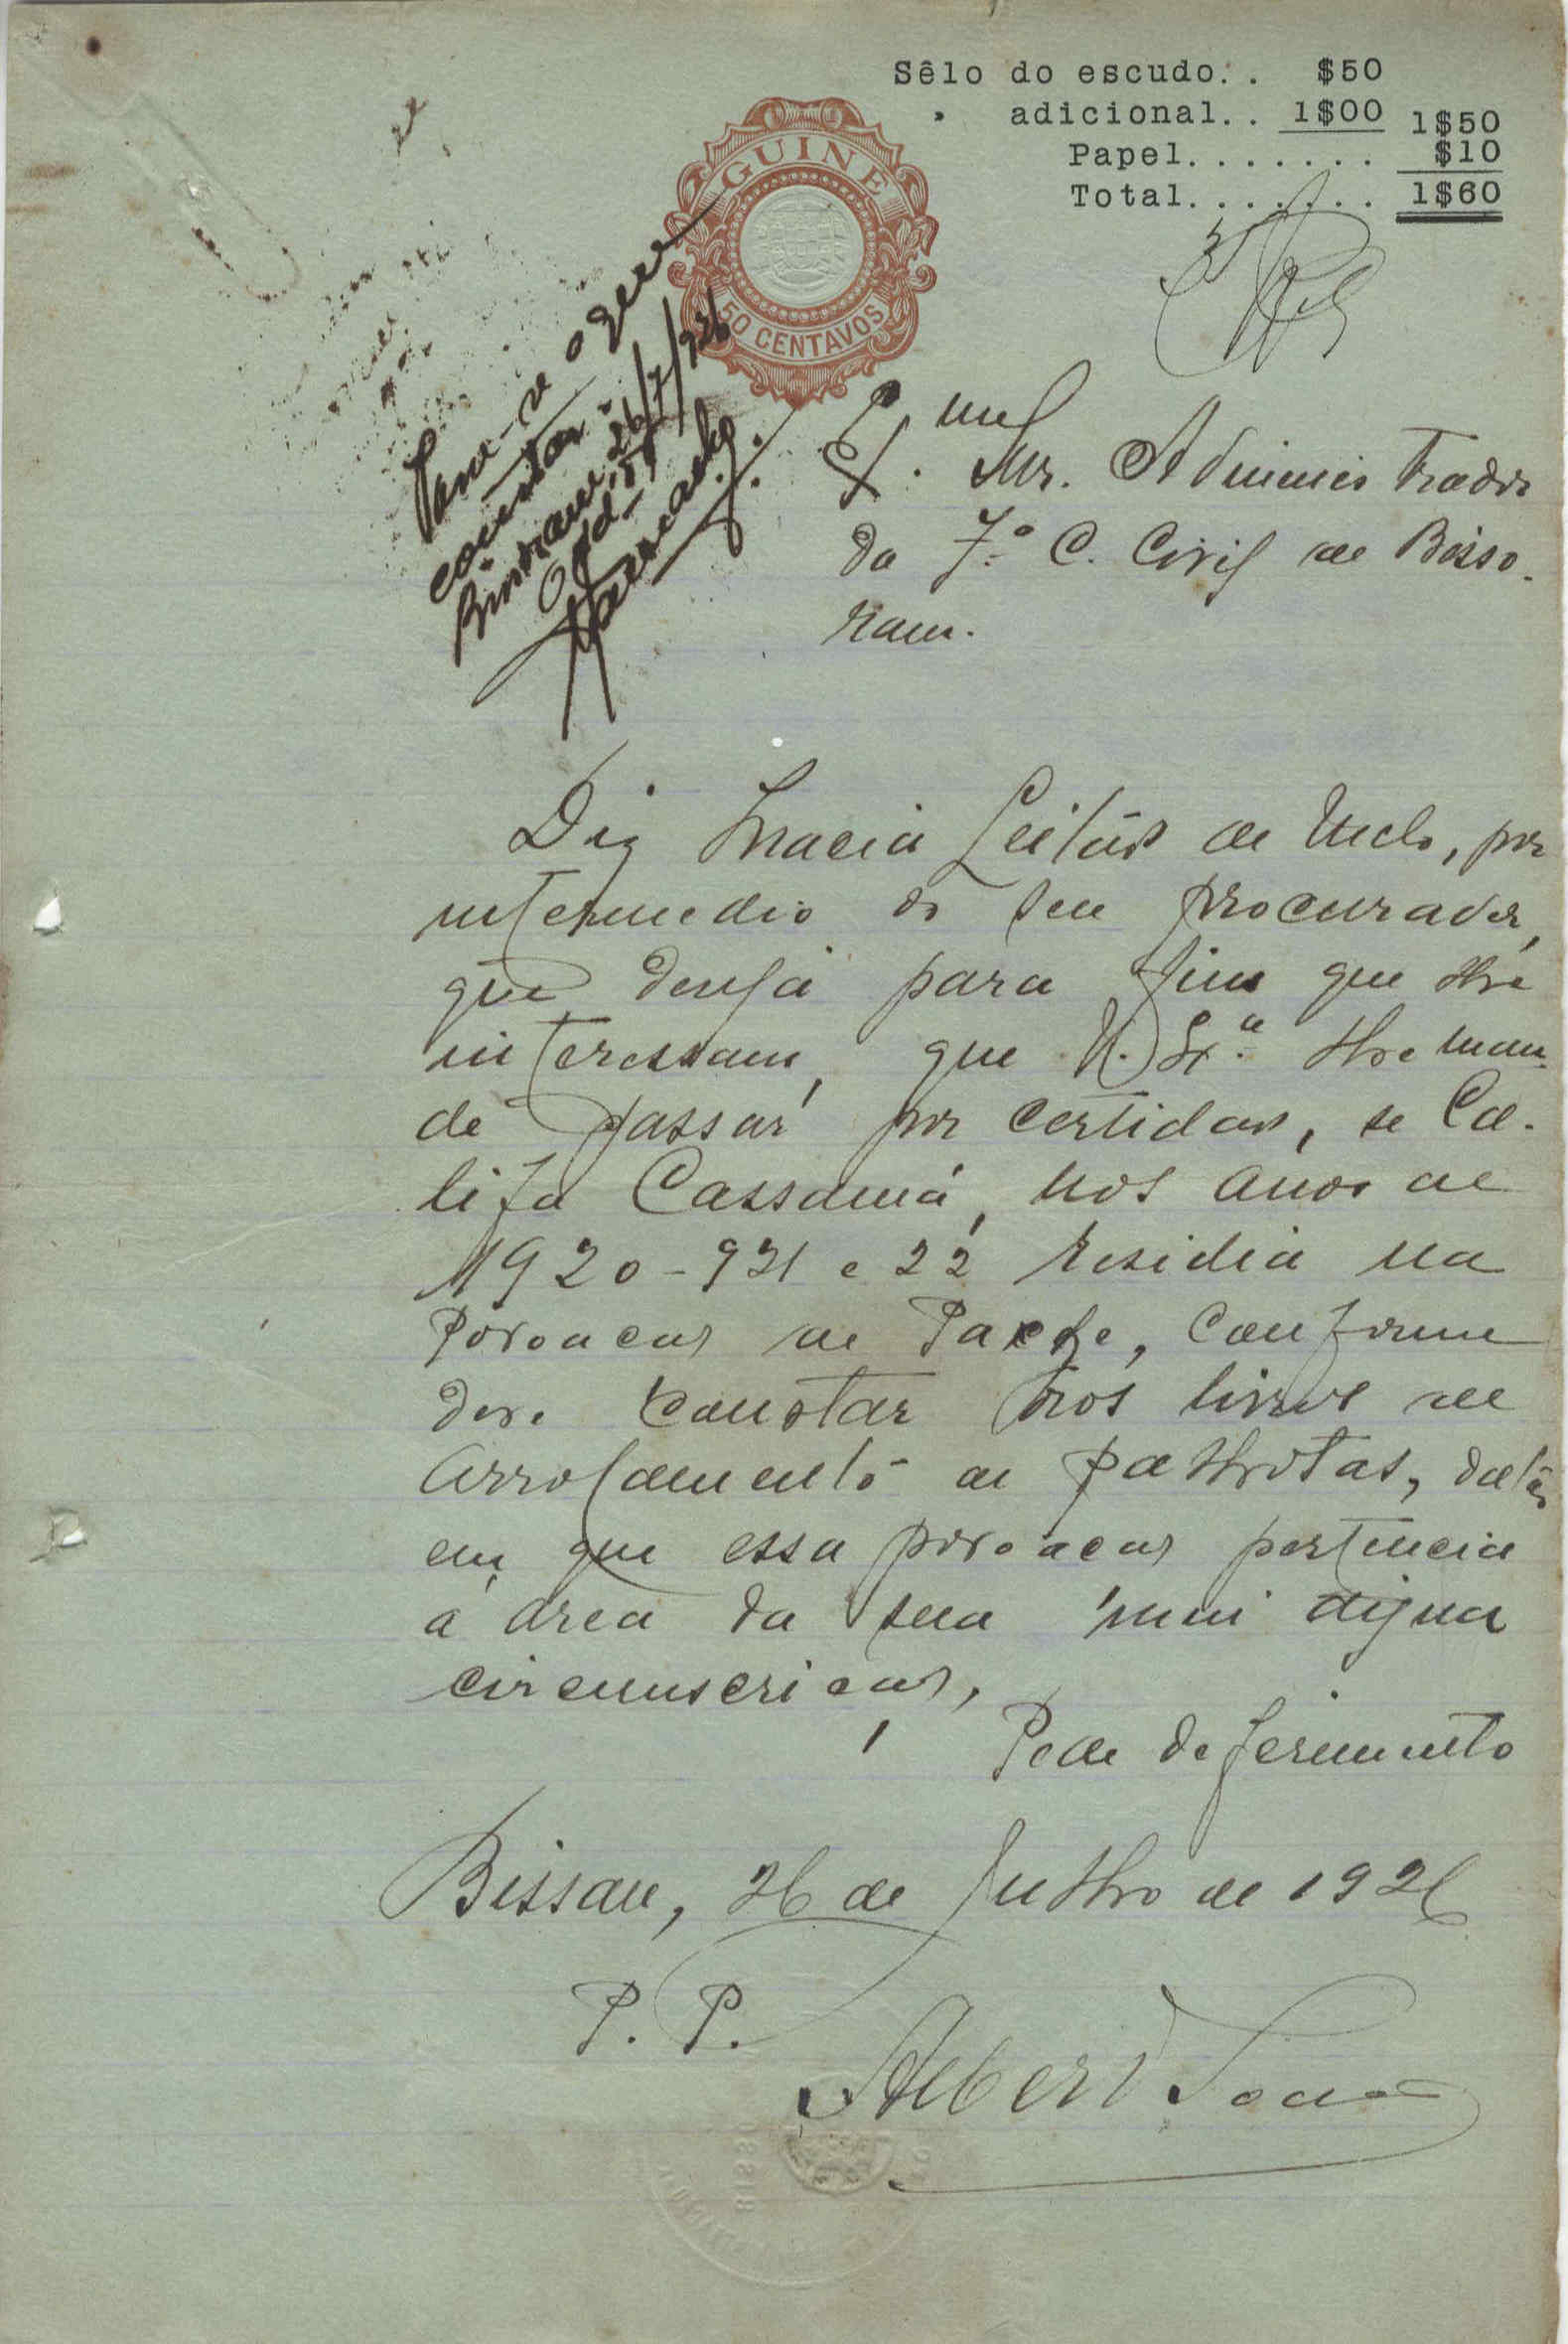 Sêlo do escudo.. $50
" adicional.. 1$00 1$50
Papel....... $10
Total....... 1$60
GUINÉ
50 CENTAVOS
Passe-se o que
constar.
Bissoram, 26/7/926
O Ad.
Ex.mo Snr. Administrador
da 7.ª C. Civil de Bisso-
ram.
Diz Inacia Leitão de Melo, por
intermedio do seu procurador,
que deseja para fins que lhe
interessam, que V. Ex.ª lhe man-
de passar por certidão, se Ca-
lifa Cassamá, nos anos de
1920-921 e 22 residia na
Povoação de
, conforme
deve constar nos livros de
arrolamento de palhotas, datas
em que essa povoação pertencia
á área da sua mui digna
circunscrição,
Pede deferimento
Bissau, 26 de Julho de 1926
P. P.
Albert